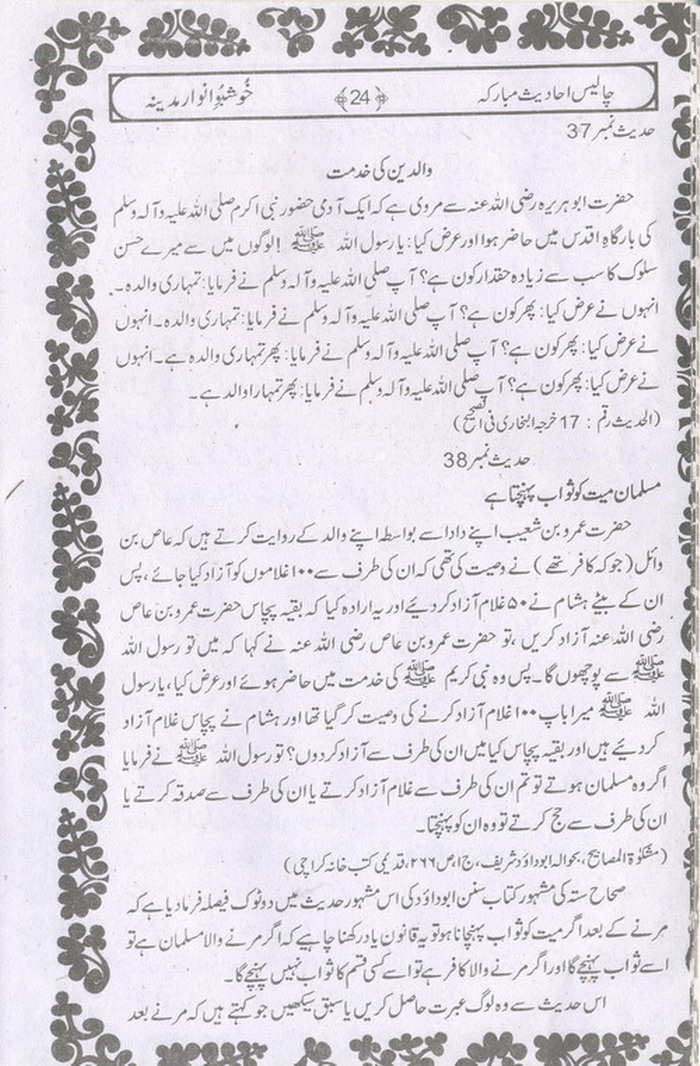 چالیس احادیث مبارکہ ﴿24﴾ خُوشبُؤِانوارمدینہ
حدیث نمبر37
والدین کی خدمت
حضرت ابو ہریرہ رضی اللہ عنہ سے مروی ہے کہ ایک آدمی حضور نبی اکرم صلی اللہ علیہ وآلہ وسلم
کی بارگاہِ اقدس میں حاضر ہوا اور عرض کیا: یا رسول اللہ ﷺ !لوگوں میں سے میرے حسن
سلوک کا سب سے زیادہ حقدار کون ہے؟ آپ صلی اللہ علیہ وآلہ وسلم نے فرمایا: تمہاری والدہ۔
انہوں نے عرض کیا: پھر کون ہے؟ آپ صلی اللہ علیہ وآلہ وسلم نے فرمایا: تمہاری والدہ۔ انہوں
نے عرض کیا: پھر کون ہے؟ آپ صلی اللہ علیہ وآلہ وسلم نے فرمایا: پھر تمہاری والدہ ہے۔ انہوں
نے عرض کیا: پھر کون ہے؟ آپ صلی اللہ علیہ وآلہ وسلم نے فرمایا: پھر تمہارا والد ہے۔
(الحدیث رقم : 17 خرجہ البخاری فی الصحیح)
حدیث نمبر38
مسلمان میت کو ثواب پہنچتا ہے
حضرت عمرو بن شعیب اپنے دادا سے بواسطہ اپنے والد کے روایت کرتے ہیں کہ عاص بن
وائل (جو کہ کافر تھے) نے وصیت کی تھی کہ ان کی طرف سے ۱۰۰ غلاموں کو آزاد کیا جائے، پس
ان کے بیٹے ہشام نے ۵۰ غلام آزاد کر دئیے اور یہ ارادہ کیا کہ بقیہ پچاس حضرت عمرو بن عاص
رضی اللہ عنہ آزاد کریں، تو حضرت عمرو بن عاص رضی اللہ عنہ نے کہا کہ میں تو رسول اللہ
ﷺ سے پوچھوں گا۔ پس وہ نبی کریم ﷺ کی خدمت میں حاضر ہوئے اور عرض کیا، یا رسول
اللہ ﷺ میرا باپ ۱۰۰ غلام آزاد کرنے کی وصیت کر گیا تھا اور ہشام نے پچاس غلام آزاد
کر دئیے ہیں اور بقیہ پچاس کیا میں ان کی طرف سے آزاد کر دوں؟ تو رسول اللہ ﷺ نے فرمایا
اگر وہ مسلمان ہوتے تو تم ان کی طرف سے غلام آزاد کرتے یا ان کی طرف سے صدقہ کرتے یا
ان کی طرف سے حج کرتے تو وہ ان کو پہنچتا۔
(مشکوٰۃ المصابیح، بحوالہ ابوداؤد شریف، ج۱، ص۲۶۶، قدیمی کتب خانہ کراچی)
صحاح ستہ کی مشہور کتاب سنن ابوداؤد کی اس مشہور حدیث میں دو ٹوک فیصلہ فرما دیا ہے کہ
مرنے کے بعد اگر میت کو ثواب پہنچانا ہو تو یہ قانون یاد رکھنا چاہیے کہ اگر مرنے والا مسلمان ہے تو
اسے ثواب پہنچے گا اور اگر مرنے والا کافر ہے تو اسے کسی قسم کا ثواب نہیں پہنچے گا۔
اس حدیث سے وہ لوگ عبرت حاصل کریں یا سبق سیکھیں جو کہتے ہیں کہ مرنے بعد